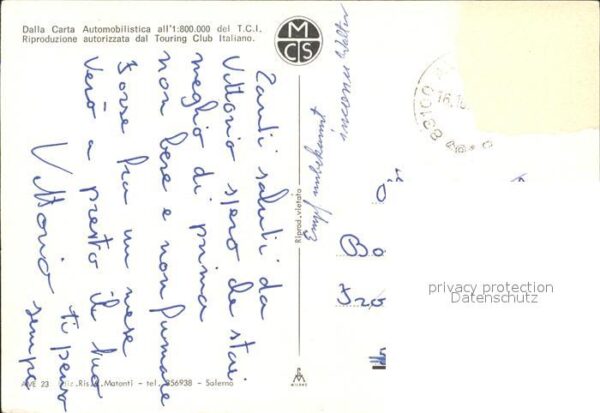 Dalla Carta Automobilistica all'1:800.000 del T.C.I.
Riproduzione autorizzata dal Touring Club Italiano.
MCS
Tanti saluti da
Vittorio spero che stai
meglio di prima
non bere e non fumare
Forse fra un mese
verò a presto il tuo
Vittorio ti penso
sempre
Riprod. vietata
Empf unbekannt
88100
16.
Bo
privacy protection
Datenschutz
AVE 23
Matonti - tel. 356938 - Salerno
MILANO